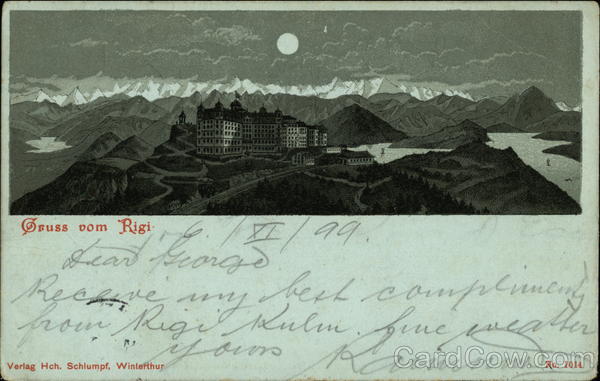 Gruss vom Rigi
XI / 99.
Dear George
Receive my best compliments
from Rigi Kulm. fine weather
yours
Verlag Hch. Schlumpf, Winterthur
CardCow.com
No. 7014